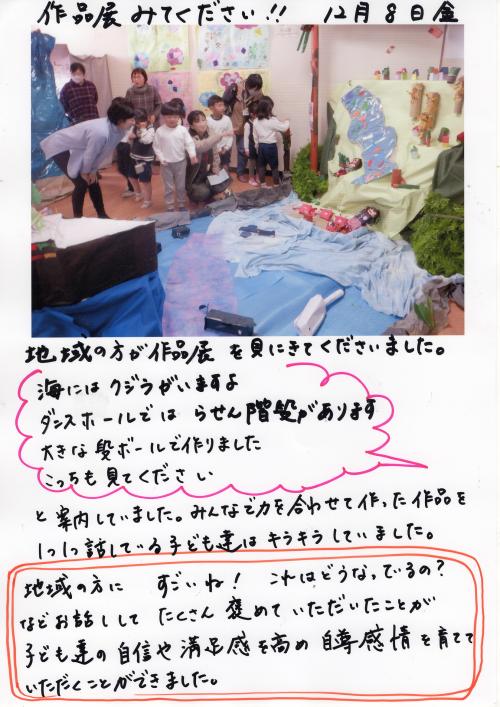 作品展みてください!! 12月8日金
地域の方が作品展を見にきてくださいました。
海にはクジラがいますよ
ダンスホールでは らせん階段があります
大きな段ボールで作りました
こっちも見てください
と案内していました。みんなで力を合わせて作った作品を
1つ1つ話している子ども達はキラキラしていました。
地域の方に すごいね! これはどうなっているの?
などお話しして たくさん褒めていただいたことが
子ども達の自信や満足感を高め 自尊感情を育てて
いただくことができました。